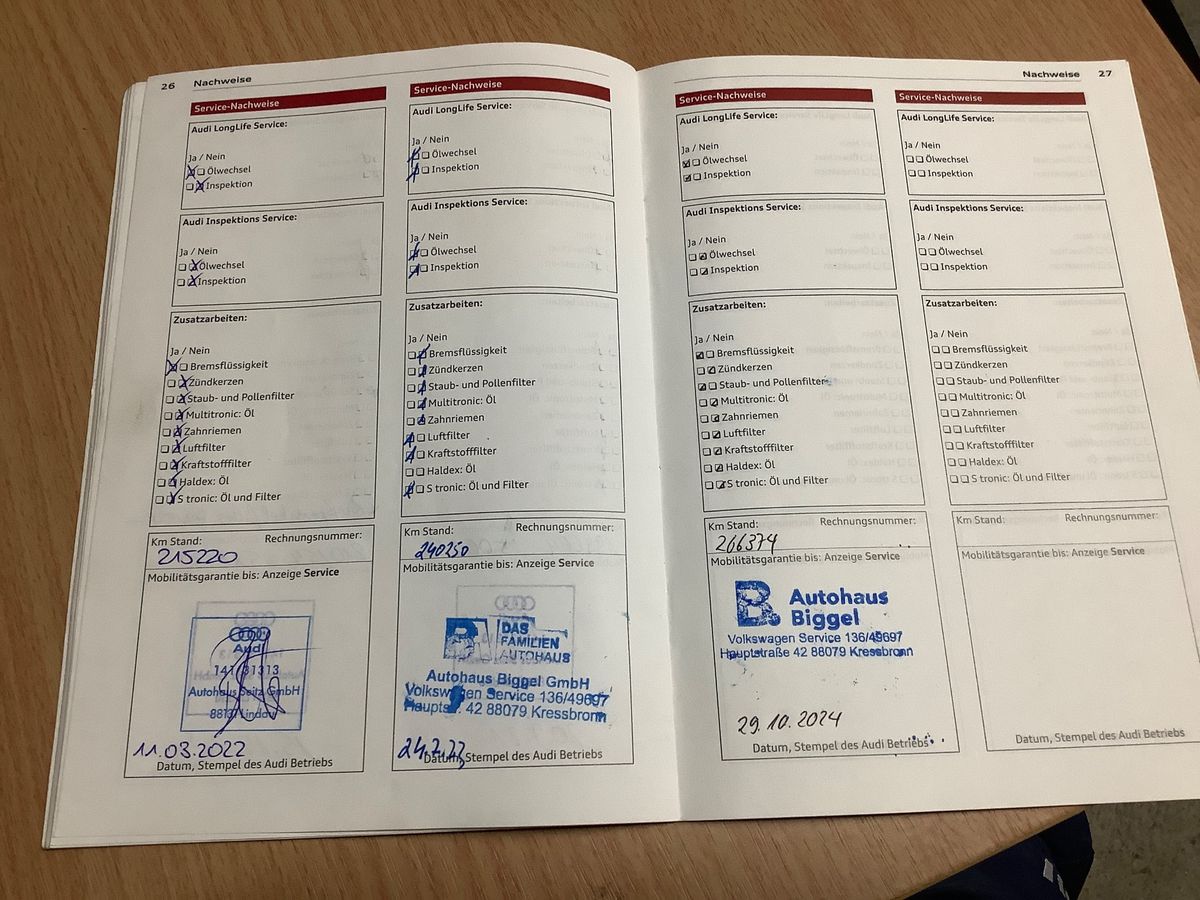 26 Nachweise
Service-Nachweise
Audi LongLife Service:
Ja / Nein
Ölwechsel
Inspektion
Audi Inspektions Service:
Ja / Nein
Ölwechsel
Inspektion
Zusatzarbeiten:
Ja / Nein
Bremsflüssigkeit
Zündkerzen
Staub- und Pollenfilter
Multitronic: Öl
Zahnriemen
Luftfilter
Kraftstofffilter
Haldex: Öl
S tronic: Öl und Filter
Km Stand: Rechnungsnummer:
215220
Mobilitätsgarantie bis: Anzeige Service
Audi
Autohaus Seitz GmbH
88131 Lindau
11.03.2022
Datum, Stempel des Audi Betriebs
Service-Nachweise
Audi LongLife Service:
Ja / Nein
Ölwechsel
Inspektion
Audi Inspektions Service:
Ja / Nein
Ölwechsel
Inspektion
Zusatzarbeiten:
Ja / Nein
Bremsflüssigkeit
Zündkerzen
Staub- und Pollenfilter
Multitronic: Öl
Zahnriemen
Luftfilter
Kraftstofffilter
Haldex: Öl
S tronic: Öl und Filter
Km Stand: Rechnungsnummer:
240250
Mobilitätsgarantie bis: Anzeige Service
DAS
FAMILIEN
AUTOHAUS
Autohaus Biggel GmbH
Volkswagen Service 136/49697
Hauptst. 42 88079 Kressbronn
24.7.23
Datum, Stempel des Audi Betriebs
Nachweise 27
Service-Nachweise
Audi LongLife Service:
Ja / Nein
Ölwechsel
Inspektion
Audi Inspektions Service:
Ja / Nein
Ölwechsel
Inspektion
Zusatzarbeiten:
Ja / Nein
Bremsflüssigkeit
Zündkerzen
Staub- und Pollenfilter
Multitronic: Öl
Zahnriemen
Luftfilter
Kraftstofffilter
Haldex: Öl
S tronic: Öl und Filter
Km Stand: Rechnungsnummer:
266374
Mobilitätsgarantie bis: Anzeige Service
B. Autohaus
Biggel
Volkswagen Service 136/49697
Hauptstraße 42 88079 Kressbronn
29.10.2024
Datum, Stempel des Audi Betriebs
Service-Nachweise
Audi LongLife Service:
Ja / Nein
Ölwechsel
Inspektion
Audi Inspektions Service:
Ja / Nein
Ölwechsel
Inspektion
Zusatzarbeiten:
Ja / Nein
Bremsflüssigkeit
Zündkerzen
Staub- und Pollenfilter
Multitronic: Öl
Zahnriemen
Luftfilter
Kraftstofffilter
Haldex: Öl
S tronic: Öl und Filter
Km Stand: Rechnungsnummer:
Mobilitätsgarantie bis: Anzeige Service
Datum, Stempel des Audi Betriebs